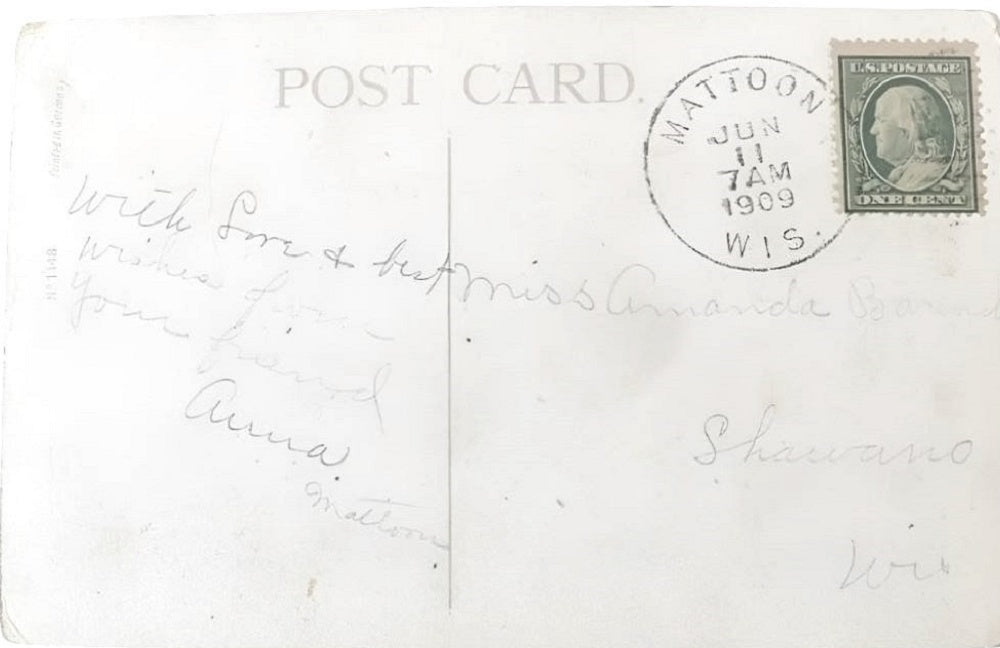 POST CARD.
Printed in Germany
MATTOON
JUN
11
7AM
1909
WIS.
U.S. POSTAGE
ONE CENT
With Love & best
wishes from
your friend
Anna
Mattoon
Miss Amanda
Shawano
Wis